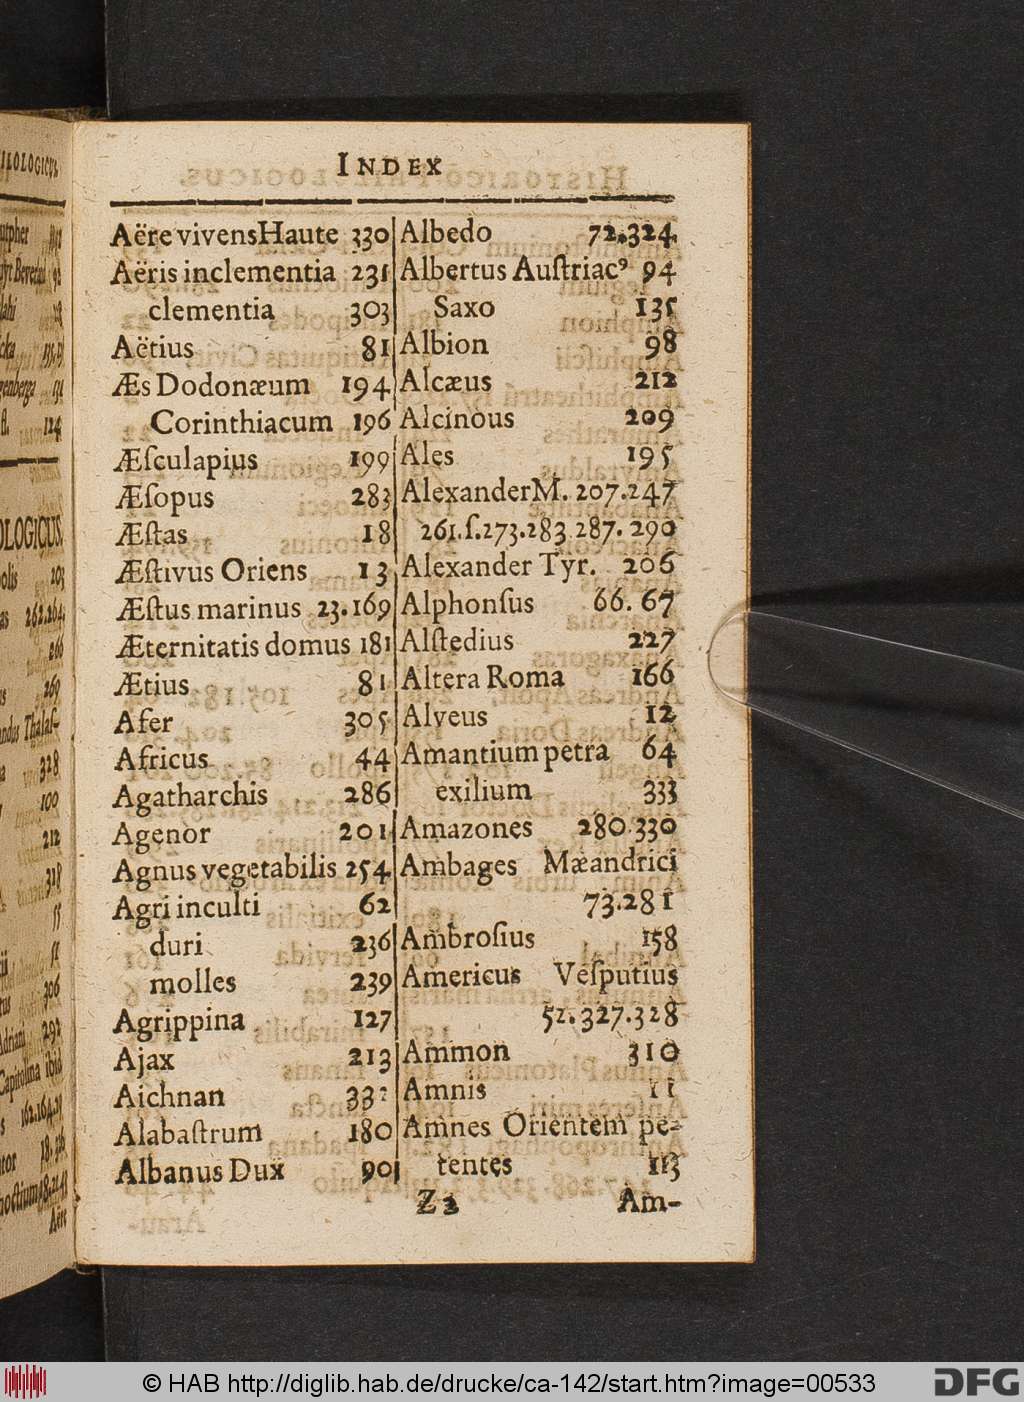 INDEX
Aëre vivensHaute 330
Aëris inclementia 231
clementia 303
Aëtius 81
Æs Dodonæum 194
Corinthiacum 196
Æſculapius 199
Æſopus 283
Æſtas 18
Æſtivus Oriens 13
Æſtus marinus 23.169
Æternitatis domus 181
Ætius 81
Afer 305
Africus 44
Agatharchis 286
Agenor 201
Agnus vegetabilis 254
Agri inculti 62
duri 236
molles 239
Agrippina 127
Ajax 213
Aichnan
Alabaſtrum 180
Albanus Dux 90
Albedo 72.324
Albertus Auſtriacꝰ 94
Saxo 135
Albion 98
Alcæus 212
Alcinous 209
Ales 195
AlexanderM. 207.247
261.ſ.273.283.287.290
Alexander Tyr. 206
Alphonſus 66.67
Alſtedius 227
Altera Roma 166
Alveus 12
Amantium petra 64
exilium 333
Amazones 280.330
Ambages Mæandrici
73.281
Ambroſius 158
Americus Veſputius
52.327.328
Ammon 310
Amnis 11
Amnes Orientem pe-
tentes 113
Z2 Am-
ILOLOGICUS.
OLOGICUS.
124
203
262.264
266
269
328
100
212
318
55
51
306
Adriani 292
Capitolina ibid
Aëre
© HAB http://diglib.hab.de/drucke/ca-142/start.htm?image=00533
DFG